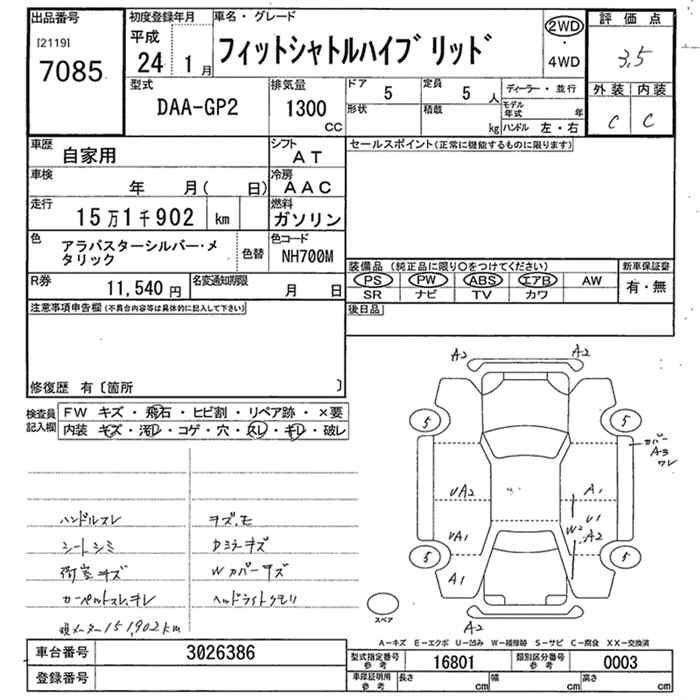 出品番号
[2119]
7085
初度登録年月
平成
24 1月
車名・グレード
フィットシャトルハイブリッド
2WD
・
4WD
評価点
3.5
外装 内装
C C
型式
DAA-GP2
排気量
1300
CC
ドア
5
定員
5 人
形状
積載
kg
ディーラー・並行
モデル
年式 年
ハンドル 左・右
車歴
自家用
シフト
AT
車検
年 月( 日)
冷房
AAC
走行
15万1千902 km
燃料
ガソリン
色
アラバスターシルバー・メ
タリック
色替
色コード
NH700M
R券
11,540 円
名変通知期限
月 日
セールスポイント(正常に機能するものに限ります)
装備品 (純正品に限り○をつけてください)
PS PW ABS エアB AW
SR ナビ TV カワ
新車保証書
有・無
後日品
注意事項申告欄(不具合内容等は具体的に記入して下さい)
修復歴 有〔箇所 〕
検査員
記入欄
FW キズ・飛石・ヒビ割・リペア跡・×要
内装 キズ・汚レ・コゲ・穴・スレ・キレ・破レ
ハンドルスレ ヲズ,モ
シートシミ
荷室キズ Wカバーキズ
カーペルトスレ,キレ ヘッドライトクモリ
現メーター151,902km
A2 A2
5 5
カバー
A3
ワレ
UA2 A1
U1
UA1 W2 A2
5 5
A1
A2
スペア
A-キズ E-エクボ U-凹み W-補修跡 S-サビ C-腐食 XX-交換済
車台番号
3026386
登録番号
型式指定番号
参考
16801
類別区分番号
参考
0003
車庫証明用
参考
長さ cm 幅 cm 高さ cm